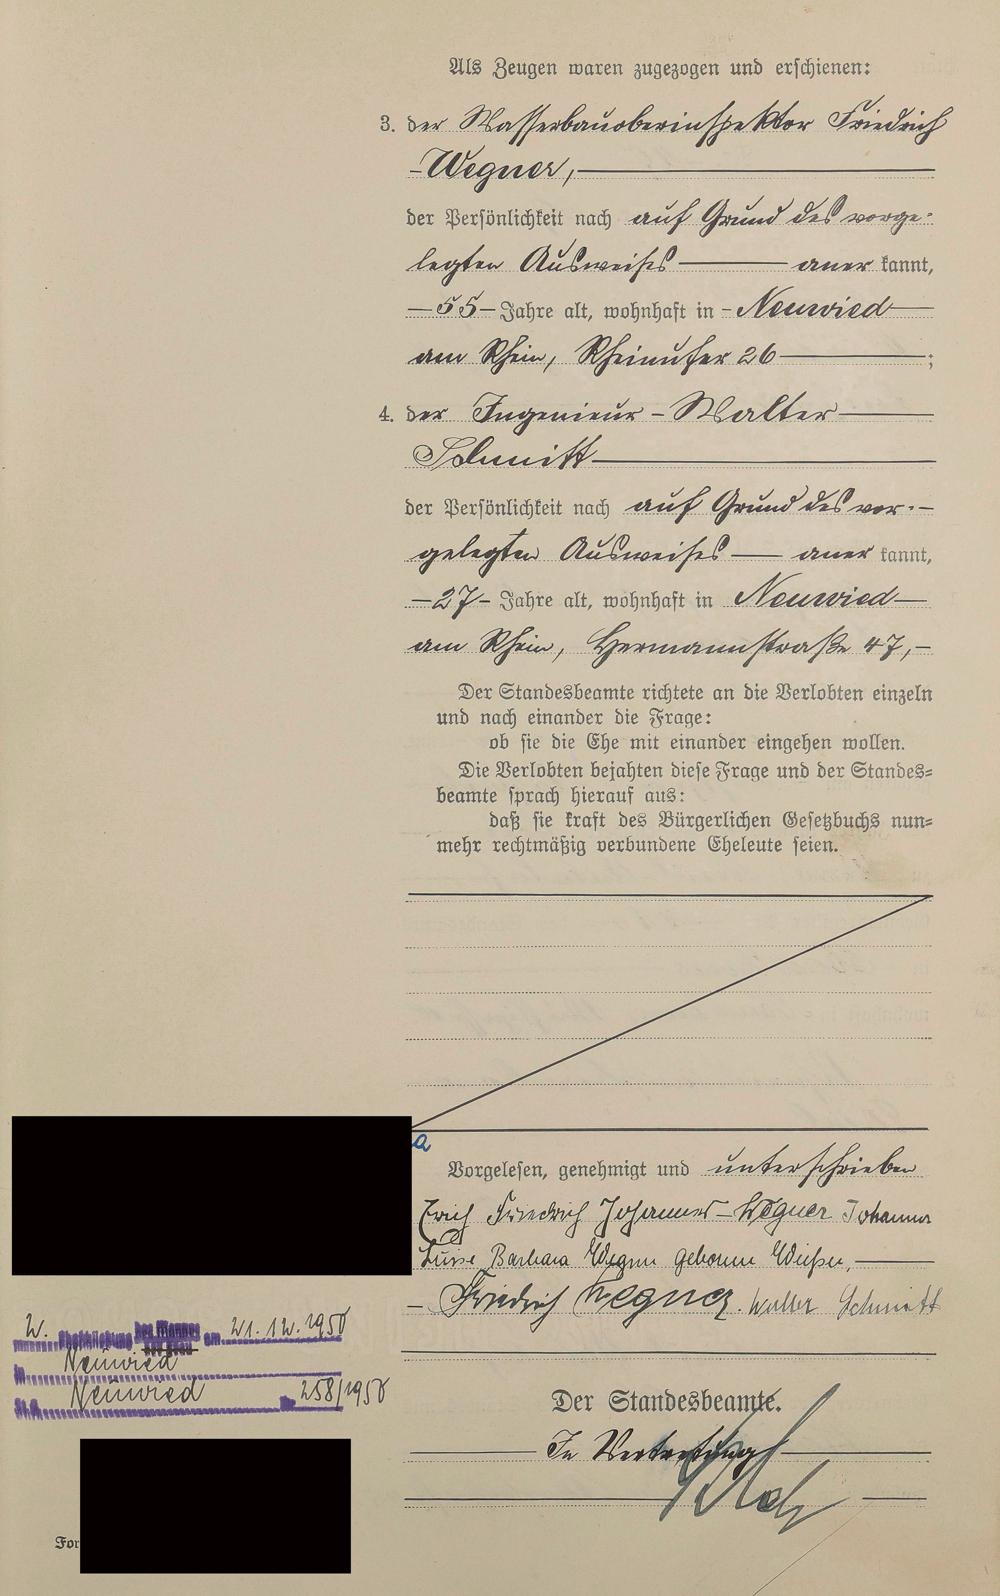 Als Zeugen waren zugezogen und erschienen:
3. der Wasserbauoberinspektor Friedrich
- Wegner,
der Persönlichkeit nach auf Grund des vorge-
legten Ausweises aner kannt,
- 55 - Jahre alt, wohnhaft in - Neuwied
am Rhein, Rheinufer 26 ;
4. der Ingenieur - Walter
Schmitt
der Persönlichkeit nach auf Grund des vor-
gelegten Ausweises aner kannt,
- 27 - Jahre alt, wohnhaft in Neuwied
am Rhein, Hermannstraße 47,
Der Standesbeamte richtete an die Verlobten einzeln
und nach einander die Frage:
ob sie die Ehe mit einander eingehen wollen.
Die Verlobten bejahten diese Frage und der Standes=
beamte sprach hierauf aus:
daß sie kraft des Bürgerlichen Gesetzbuchs nun=
mehr rechtmäßig verbundene Eheleute seien.
a
Vorgelesen, genehmigt und unterschrieben
Erich Friedrich Johannes Wegner Johanna
Luise Barbara Wegner geborene
- Friedrich Wegner. Walter Schmitt
2. Eheschließung des Mannes am 21.12.1950
der Frau
in Neuwied
St.A. Neuwied Nr. 258/1950
Der Standesbeamte.
In Vertretung
For